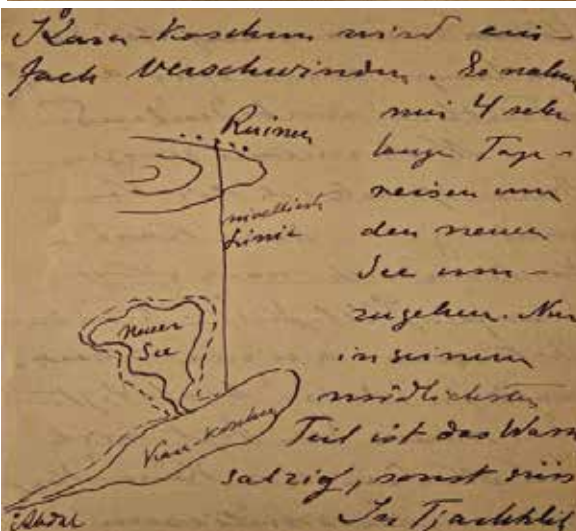 Kara-Koschun wird ein-
fach verschwinden. Es nahm
mir 4 sehr
lange Tage-
reisen um
den neuen
See um-
zugehen. Nur
in seinem
nördlichsten
Teil ist das Wass
salzig, sonst süss
In Tjarkhlik
Ruinen
nivellierte
Linie
neuer
See
Kara-Koschun
Abdal